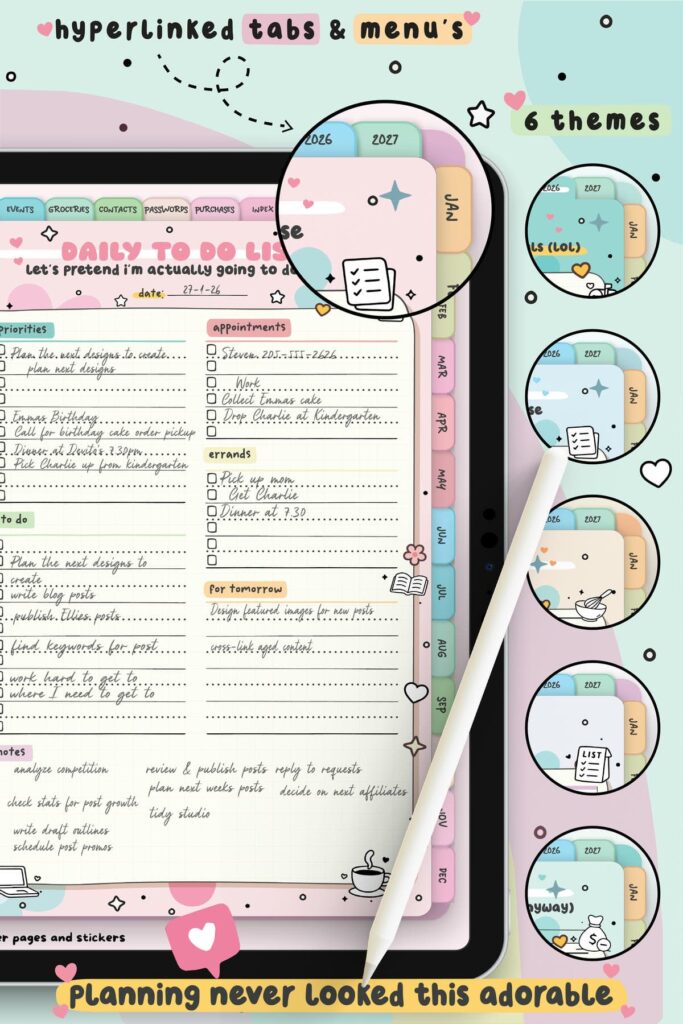 hyperlinked tabs & menu's
6 themes
2026 2027
JAN
EVENTS GROCERIES CONTACTS PASSWORDS PURCHASES INDEX
se
DAILY TO DO LIS
Let's pretend i'm actually going to do
date: 27-1-26
priorities
Plan the next designs to create
plan next designs
Emmas Birthday
Call for birthday cake order pickup
Dinner at Devita's 7.30pm
Pick Charlie up from kindergarten
to do
Plan the next designs to
create
write blog posts
publish Ellies posts
find keywords for post
work hard to get to
where I need to get to
appointments
Steven 205-555-2626
Work
Collect Emmas cake
Drop Charlie at Kindergarten
errands
Pick up mom
Get Charlie
Dinner at 7.30
for tomorrow
Design featured images for new posts
cross-link aged content
notes
analyze competition
check stats for post growth
write draft outlines
schedule post promos
review & publish posts
plan next weeks posts
tidy studio
reply to requests
decide on next affiliates
FEB
MAR
APR
MAY
JUN
JUL
AUG
SEP
NOV
DEC
2026 2027
JAN
ls (LOL)
2026 2027
JAN
se
2026 2027
JAN
2026 2027
JAN
LIST
2026 2027
JAN
nyway)
$
er pages and stickers
planning never looked this adorable